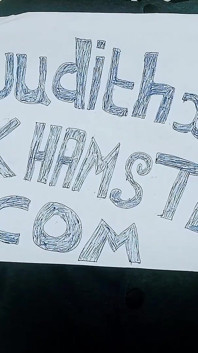 Judithx
XHAMSTE
COM